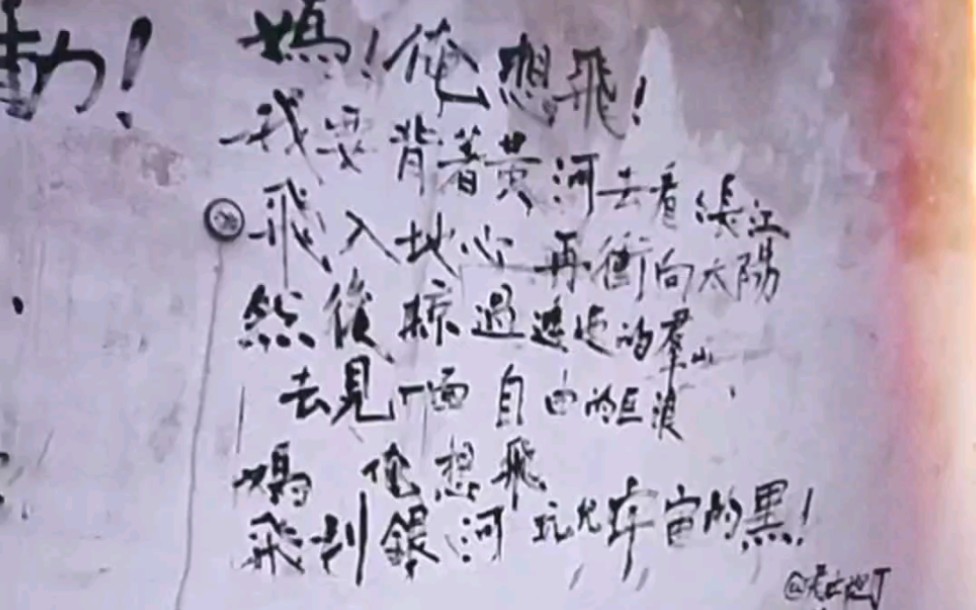 動！
媽！俺想飛！
我要背著黃河去看長江
飛入地心 再衝向太陽
然後掠過遼遠的群山
去見一面 自由的巨浪
媽 俺想飛
飛到銀河 吃光宇宙的黑！